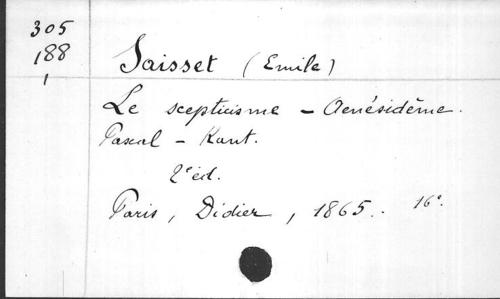 305
188
1
Saisset (Emile)
Le scepticisme - Oenésidème.
Pascal - Kant.
2e éd.
Paris, Didier, 1865. 16°.